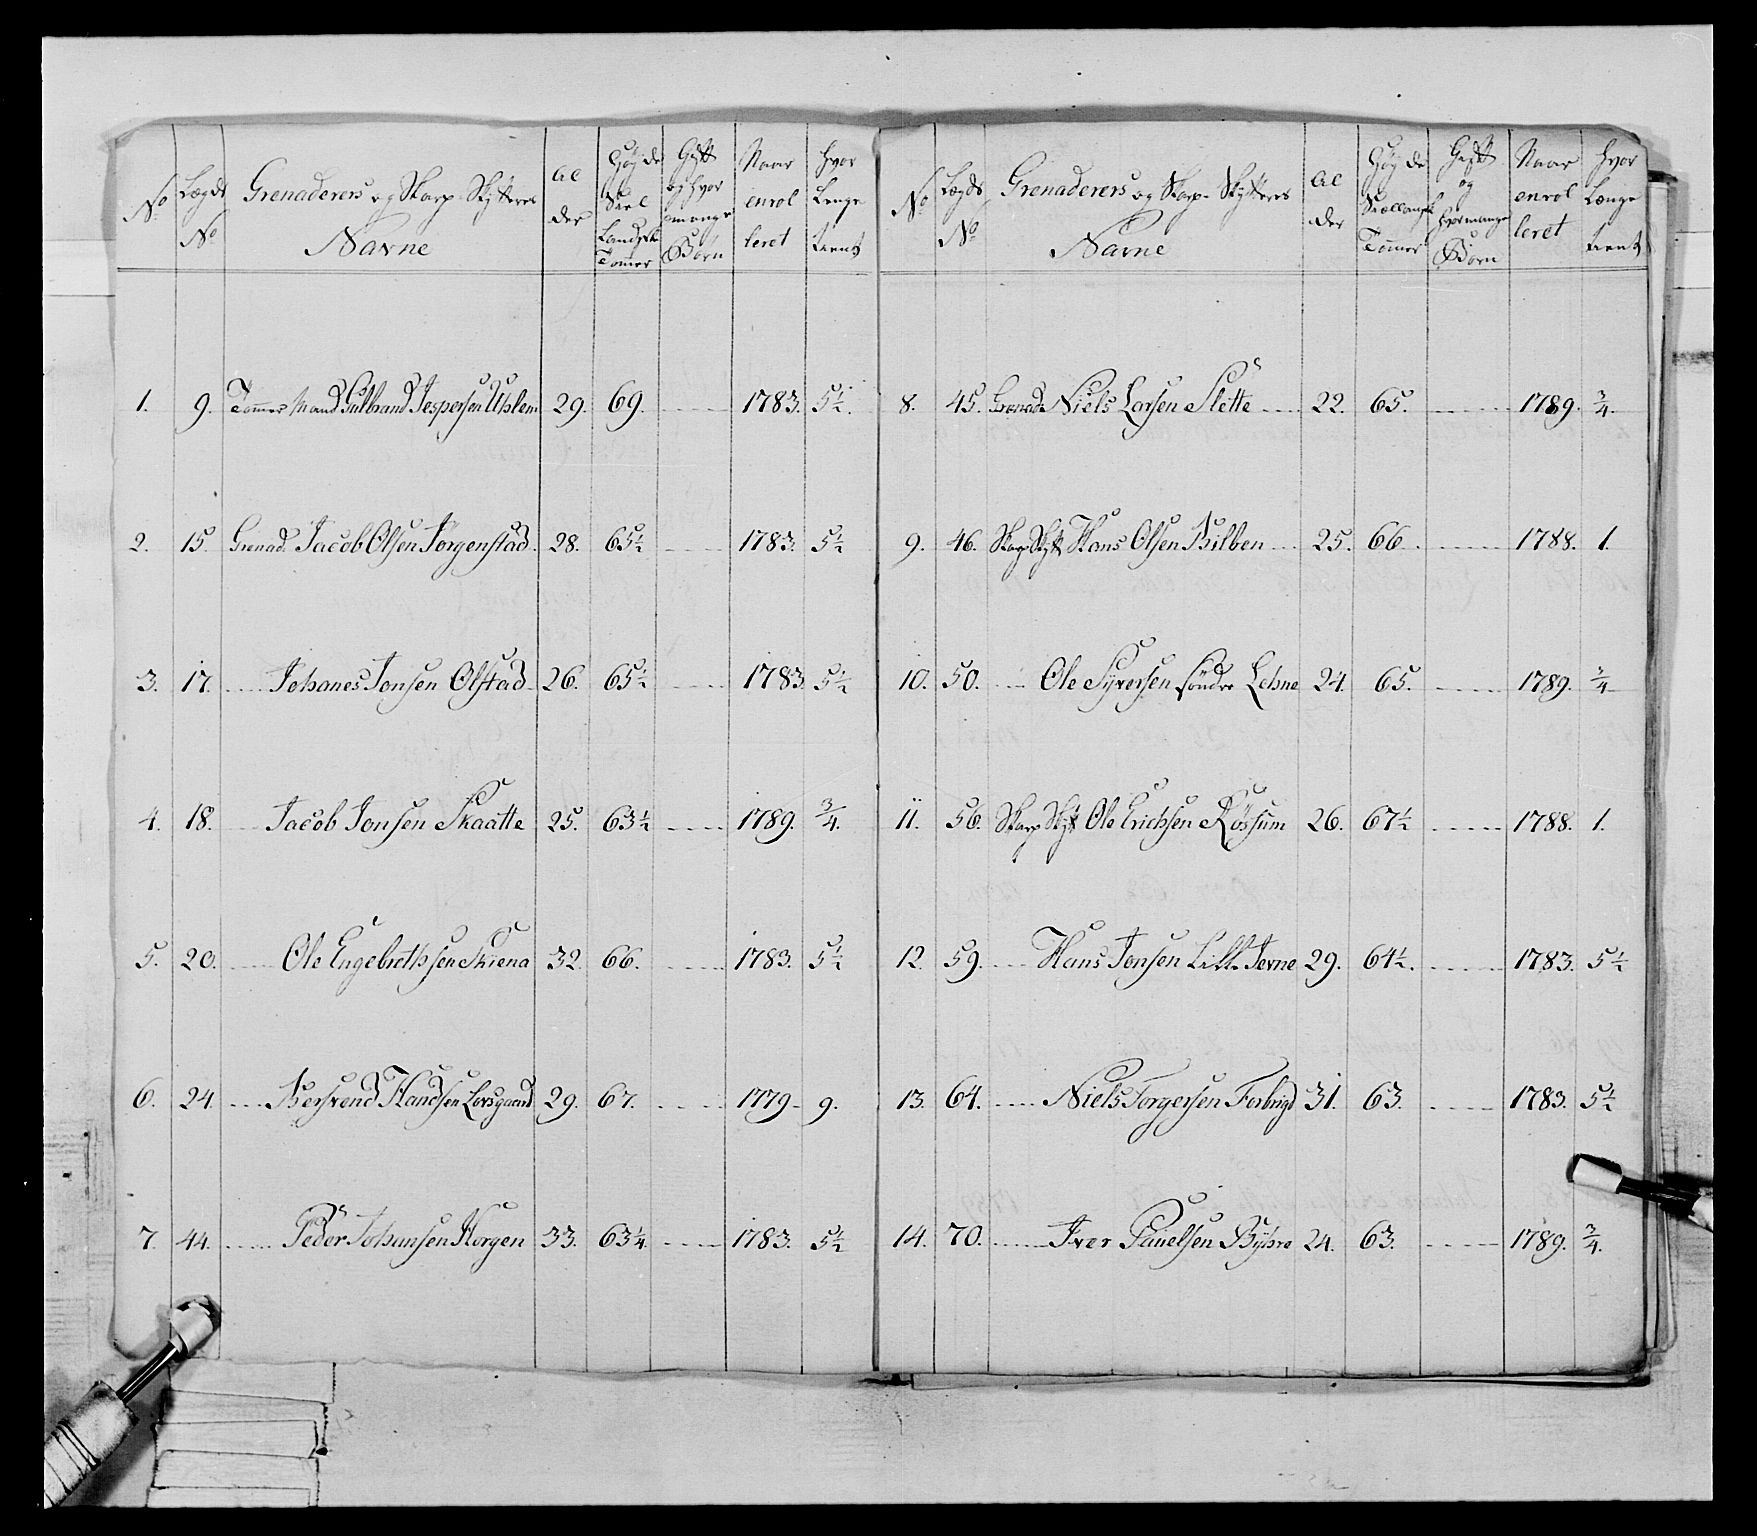 No Lægds No Grenaderers og Skarp Skytteres Navne Al der Høyde Siel Landske Tommer Gift og hvor mange Børn Naar enrol leret hvor Lenge tient
1. 9. Tømmer Mand Gulbrand Jespersen Uhlen 29. 69. 1783. 5½.
2. 15. Grenad. Jacob Olsen Jörgenstad 28. 65½ 1783. 5½
3. 17. Johanes Jonsen Olstad 26. 65½ 1783. 5½
4. 18. Jacob Jonsen Skaatte 25. 63½ 1789. ¾.
5. 20. Ole Engebrethsen Skiena 32. 66. 1783. 5½
6. 24. Bersvend Handsen Lorsgaard 29. 67. 1779. 9.
7. 44. Peder Johansen Horgen 33. 63¼ 1783. 5½
No Lægds No Grenaderers og Skarp Skytteres Navne Al der Høyde Siællansk Tommer Gift og hvor mange Børn Naar enrol leret hvor Længe tient
8. 45. Grenad. Niels Larsen Slette 22. 65. 1789. ¾.
9. 46. Skarp Skytt Hans Olsen Bilben 25. 66. 1788. 1.
10. 50. Ole Syversen söndre Lehne 24. 65. 1789. ¾
11. 56. Skarp Skytt Ole Erichsen Rössum 26. 67½ 1788. 1.
12. 59. Hans Jonsen Lille Jevne 29. 64½. 1783. 5½
13. 64. Niels Torgersen Forbrigd 31. 63. 1783. 5½
14. 70. Iver Pauelsen Býhre 24. 63. 1789. ¾.